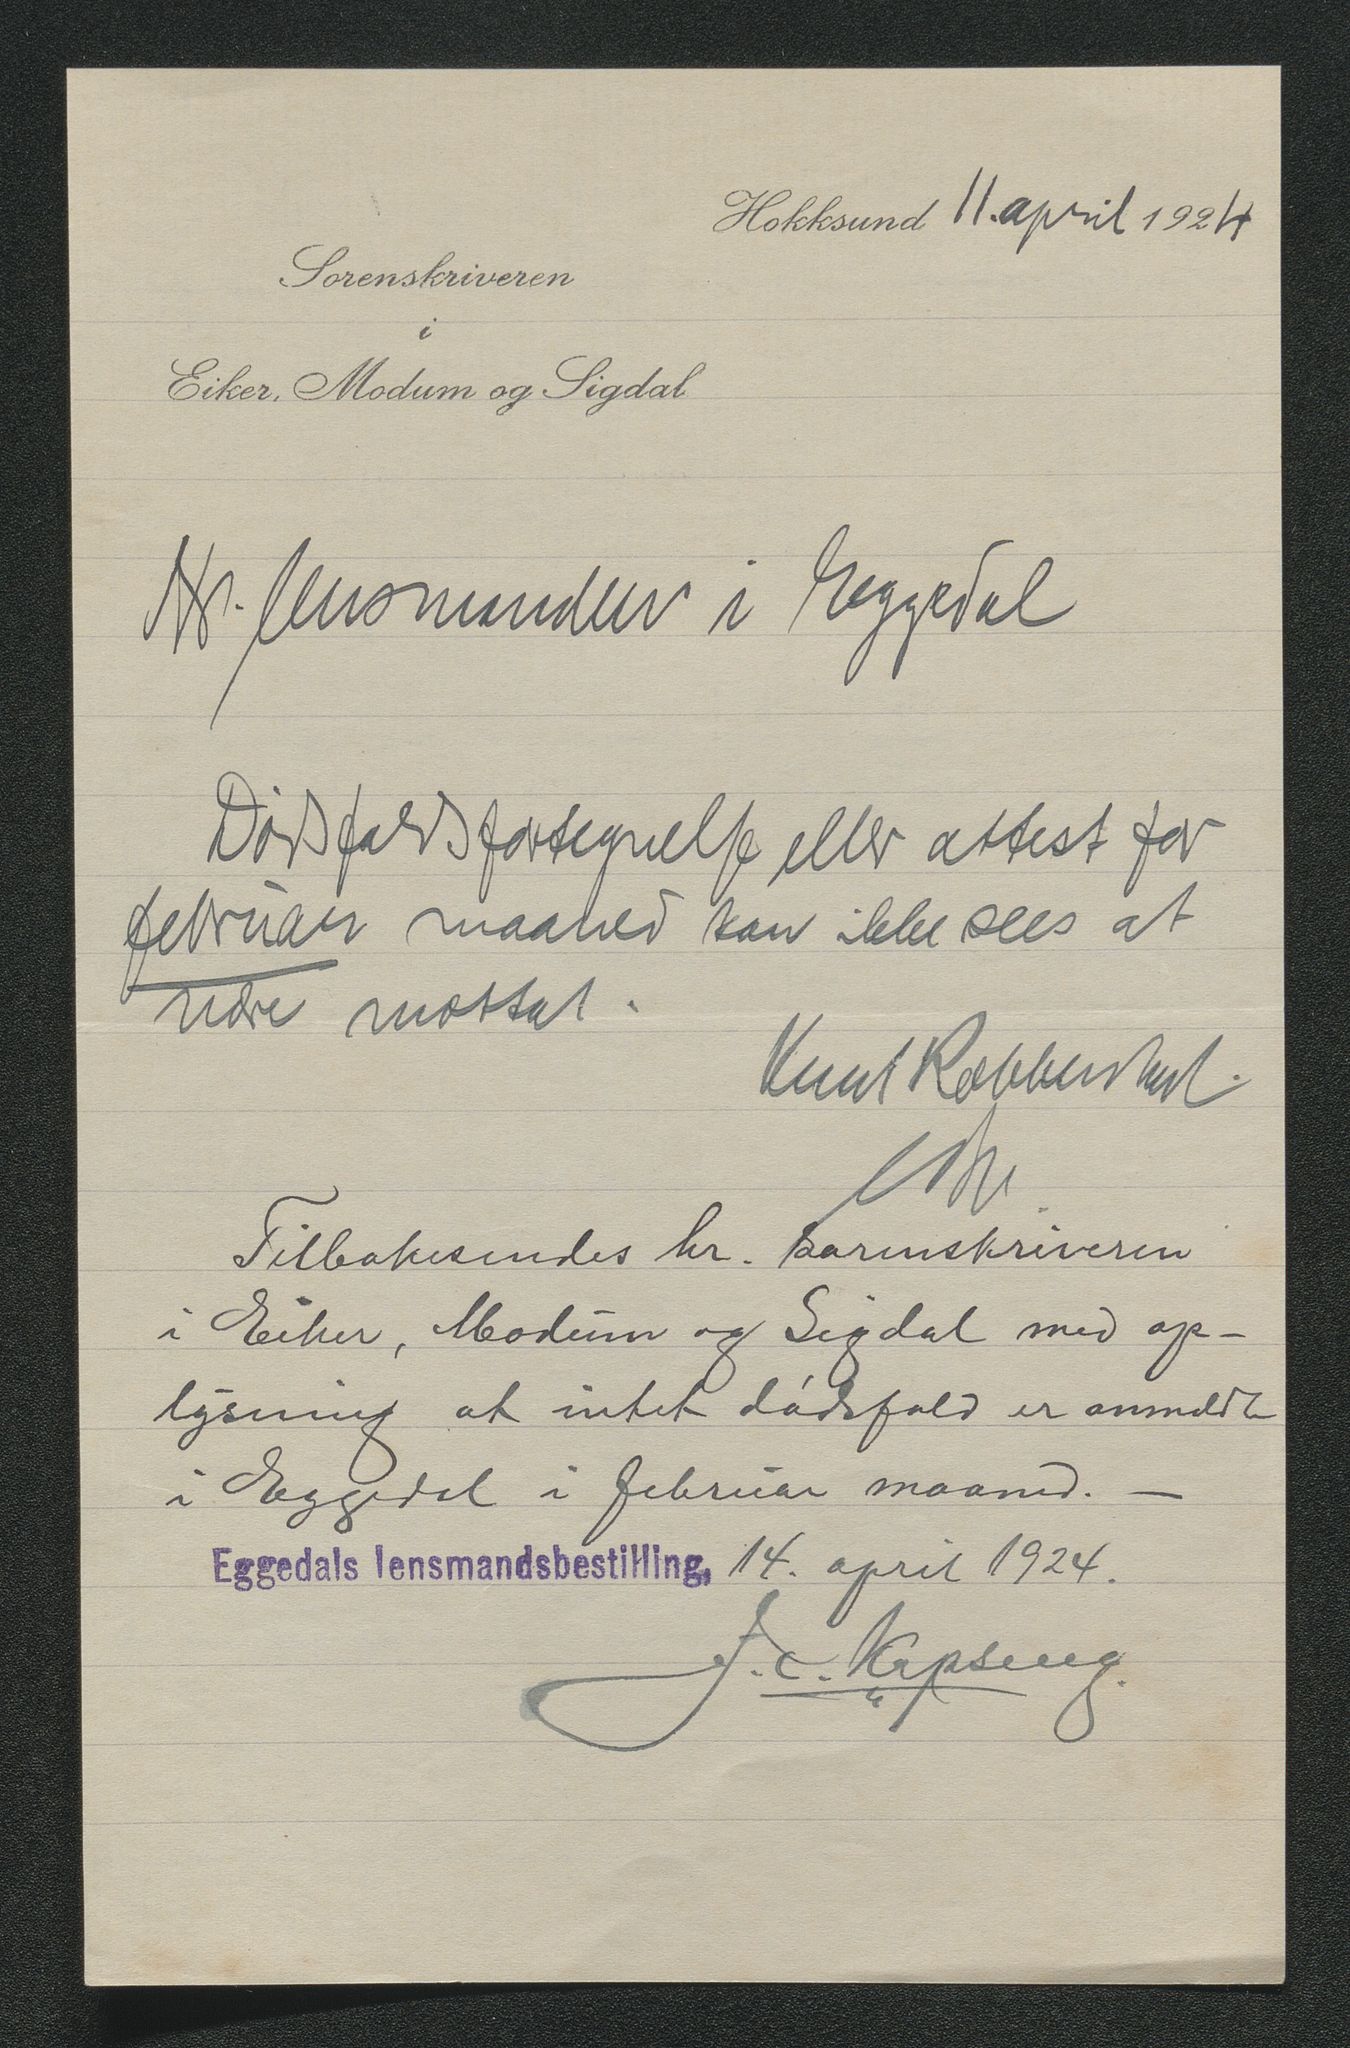 Hokksund 11. april 1924
Sorenskriveren
i
Eiker, Modum og Sigdal
Hr. lensmanden i Eggedal
Dødsfaldsfortegnelse eller attest for
februar maaned kan ikke sees at
være mottat.
Knut Robberstad
Tilbakesendes hr. sorenskriveren
i Eiker, Modum og Sigdal med op-
lysning at intet dødsfald er anmeldt
i Eggedal i februar maaned. —
Eggedals lensmandsbestilling, 14. april 1924.
J. C. Kopseng.